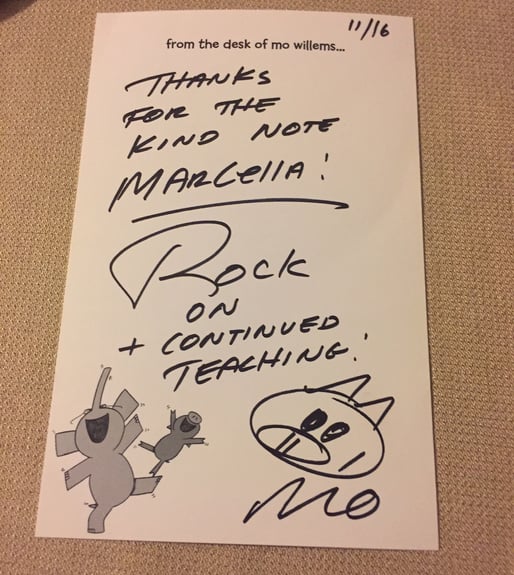 11/16
from the desk of mo willems...
THANKS
FOR THE
KIND NOTE
MARCellA!
ROCK
ON
+ CONTINUED
TEACHING!
MO